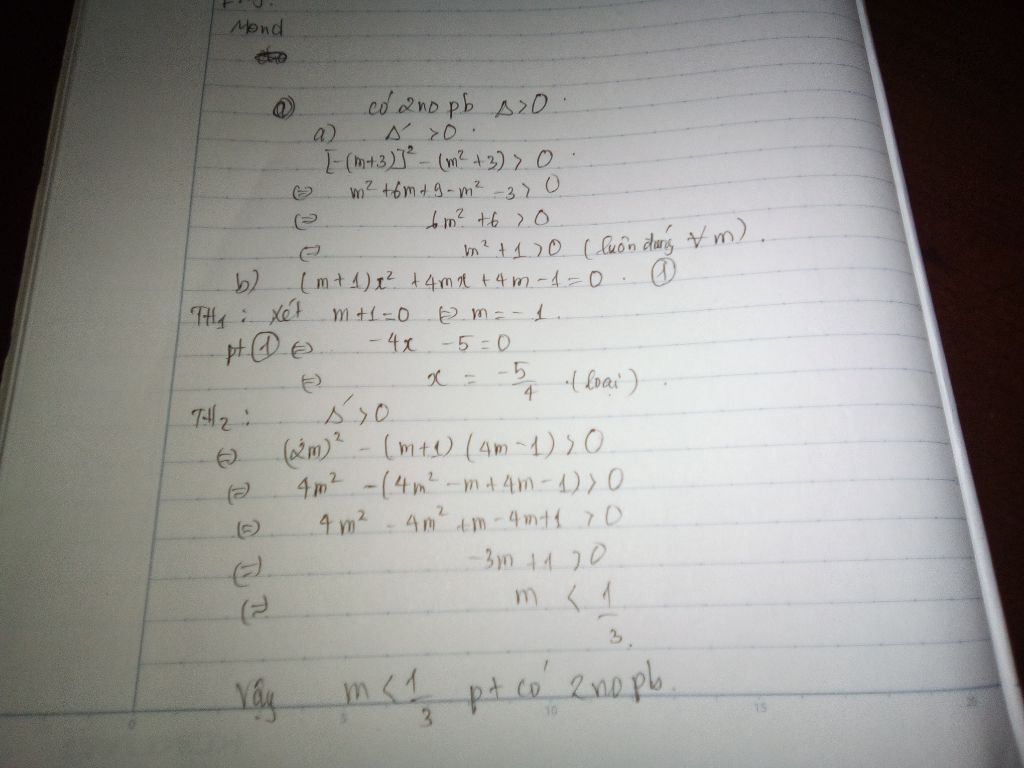 Mond
① có 2 no pb Δ>0.
a) Δ' >0.
[-(m+3)]² - (m² +3) > 0.
⇔ m² +6m+9 - m² -3 > 0
⇔ 6m² +6 > 0
⇔ m² +1 > 0 (luôn đúng ∀ m).
b) (m+1)x² +4mx +4m-1=0. ①
TH₁ : xét m+1=0 ⇔ m=-1.
pt ① ⇔ -4x -5=0
⇔ x = -5/4 .(loại).
TH₂ : Δ' >0
⇔ (2m)² - (m+1) (4m-1) > 0
⇔ 4m² -(4m² -m+4m-1) > 0
⇔ 4m² - 4m² +m-4m+1 > 0
⇔ -3m +1 > 0
⇔ m < 1/3.
Vậy m < 1/3 pt có 2 no pb.
10
15